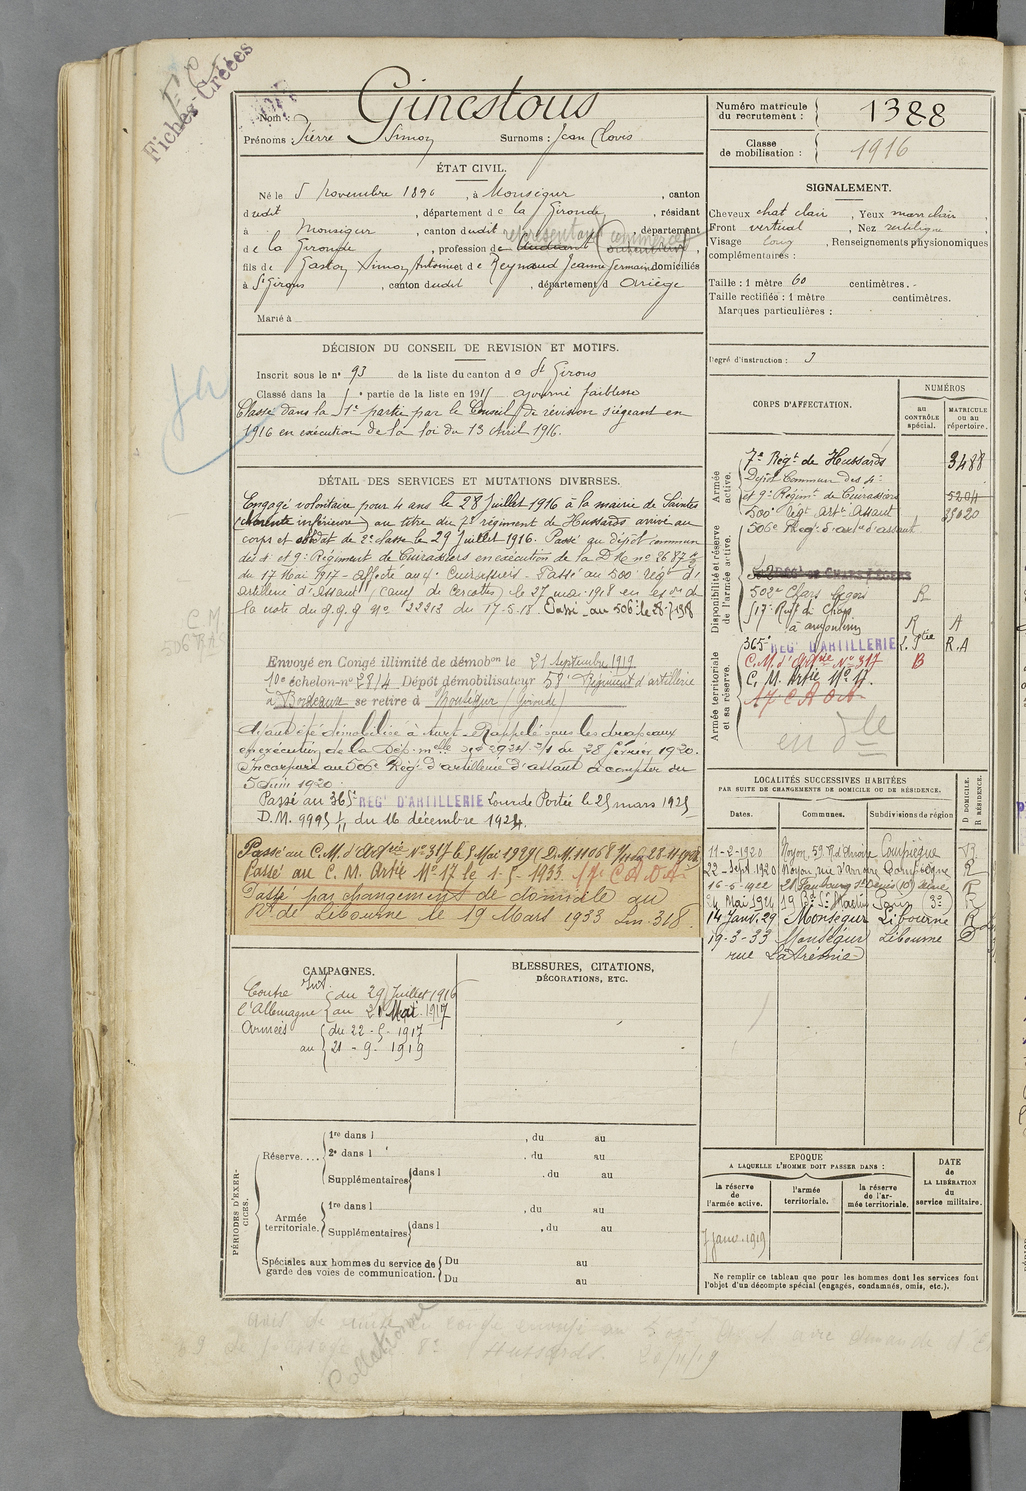 Fiches Créées
Nom : Ginestous
Prénoms : Pierre Simon Surnoms : Jean Clovis
Numéro matricule du recrutement : 1388
Classe de mobilisation : 1916
ÉTAT CIVIL.
Né le 5 novembre 1896, à Monségur, canton
dudit, département de la Gironde, résidant
à Monségur, canton dudit, département
de la Gironde, profession de représentant commerce
fils de Gaston Simon Antoine et de Reynaud Jeanne Germaine domiciliés
à St Girons, canton dudit, département d Ariège
Marié à
SIGNALEMENT.
Cheveux chat clair, Yeux marr clair,
Front vertical, Nez rectiligne,
Visage long, Renseignements physionomiques
complémentaires :
Taille : 1 mètre 60 centimètres.
Taille rectifiée : 1 mètre centimètres.
Marques particulières :
Degré d'instruction : 3
DÉCISION DU CONSEIL DE REVISION ET MOTIFS.
Inscrit sous le n° 93 de la liste du canton de St Girons
Classé dans la 1e partie de la liste en 1915 ajourné faiblesse
Classé dans la 1e partie par le Conseil de révision siégeant en
1916 en exécution de la loi du 13 Avril 1916.
DÉTAIL DES SERVICES ET MUTATIONS DIVERSES.
Engagé volontaire pour 4 ans le 28 juillet 1916 à la mairie de Saintes
(Charente inférieure) au titre du 7e régiment de Hussards arrivé au
corps et soldat de 2e classe le 29 juillet 1916. Passé au dépôt commun
des 4 et 9e Régiment de Cuirassiers en exécution de la D M no 2687
du 17 Mai 1917 - affecté au 4e Cuirassiers - Passé au 500e Régt d'
artillerie d'assaut (camp de Cercottes) le 27 mai 1918 en
la note du g.q.g no 32213 du 17-5-18. Passé au 506e le
C.M.
506 R.A.S
Envoyé en Congé illimité de démobon le 21 Septembre 1919
10e échelon-no 2814 Dépôt démobilisateur 58e Régiment d'artillerie
à Bordeaux se retire à Monségur (Gironde)
Ayant été démobilisé à tort - Rappelé sous les drapeaux
en exécution de la Dép. mlle no 2934 2/1 du 28 février 1920.
Incorporé au 506e Régt d'artillerie d'assaut à compter du
5 Juin 1920.
Passé au 365e REGt D'ARTILLERIE Lourde Portée le 25 mars 1925
D.M. 9995 1/11 du 16 décembre 1924.
Passé au C.M. d'Artie No 317 le 8 Mai 1929 (D.M. 11068
Passé au C.M. Artie No 17 le 1-5-1933 17e C A D A
Passé par changement de domicile au
Rt de Libourne le 19 Mars 1933 Lm 318
CORPS D'AFFECTATION.
NUMÉROS
au CONTRÔLE spécial.
MATRICULE ou au répertoire.
Armée active.
7e Régt de Hussards 3488
Dépôt Commun des 4e
et 9e Régimt de Cuirassiers 5204
500e Régt Artie Assaut 35020
Disponibilité et réserve de l'armée active.
506e Régt d'art d'assaut
502e REGt DE CHARS LEGERS
502e Chars légers R
517e Rgt de Chars
à R A
Armée territoriale et sa réserve.
365e REGt D'ARTILLERIE L. Ptée R.A
C.M. d'Artie No 317 B
C. M. Artie No 17.
17 C A D A
en dlle
LOCALITÉS SUCCESSIVES HABITÉES
PAR SUITE DE CHANGEMENTS DE DOMICILE OU DE RÉSIDENCE.
Dates. Communes. Subdivisions de région D DOMICILE. R RÉSIDENCE.
11-2-1920 Noyon, 59 R. d'Amiens Compiègne
22 Sept. 1920 Noyon rue d'Amiens Compiègne R
16-5-1922 21 Faubourg St Denis (10e) Seine R
24 Mai 1924 19 Bd St Martin Paris (3e) R
14 Janv. 29 Monségur Libourne R
19-3-33 Monségur Libourne D
rue Latrémie
CAMPAGNES.
Contre l'Allemagne Int. du 29 Juillet 1916
au 21 Mai 1917
Armées du 22-5-1917
au 21-9-1919
BLESSURES, CITATIONS,
DÉCORATIONS, ETC.
PÉRIODES D'EXERCICES.
Réserve.... 1re dans l , du au
2e dans l , du au
Supplémentaires dans l , du au
Armée territoriale. 1re dans l , du au
Supplémentaires dans l , du au
Spéciales aux hommes du service de garde des voies de communication. Du au
Du au
EPOQUE
A LAQUELLE L'HOMME DOIT PASSER DANS :
la réserve de l'armée active.
l'armée territoriale.
la réserve de l'armée territoriale.
DATE de LA LIBÉRATION du service militaire.
7 janv. 1919
Ne remplir ce tableau que pour les hommes dont les services font
l'objet d'un décompte spécial (engagés, condamnés, omis, etc.).
Collationné
Hussards. 20/11/19